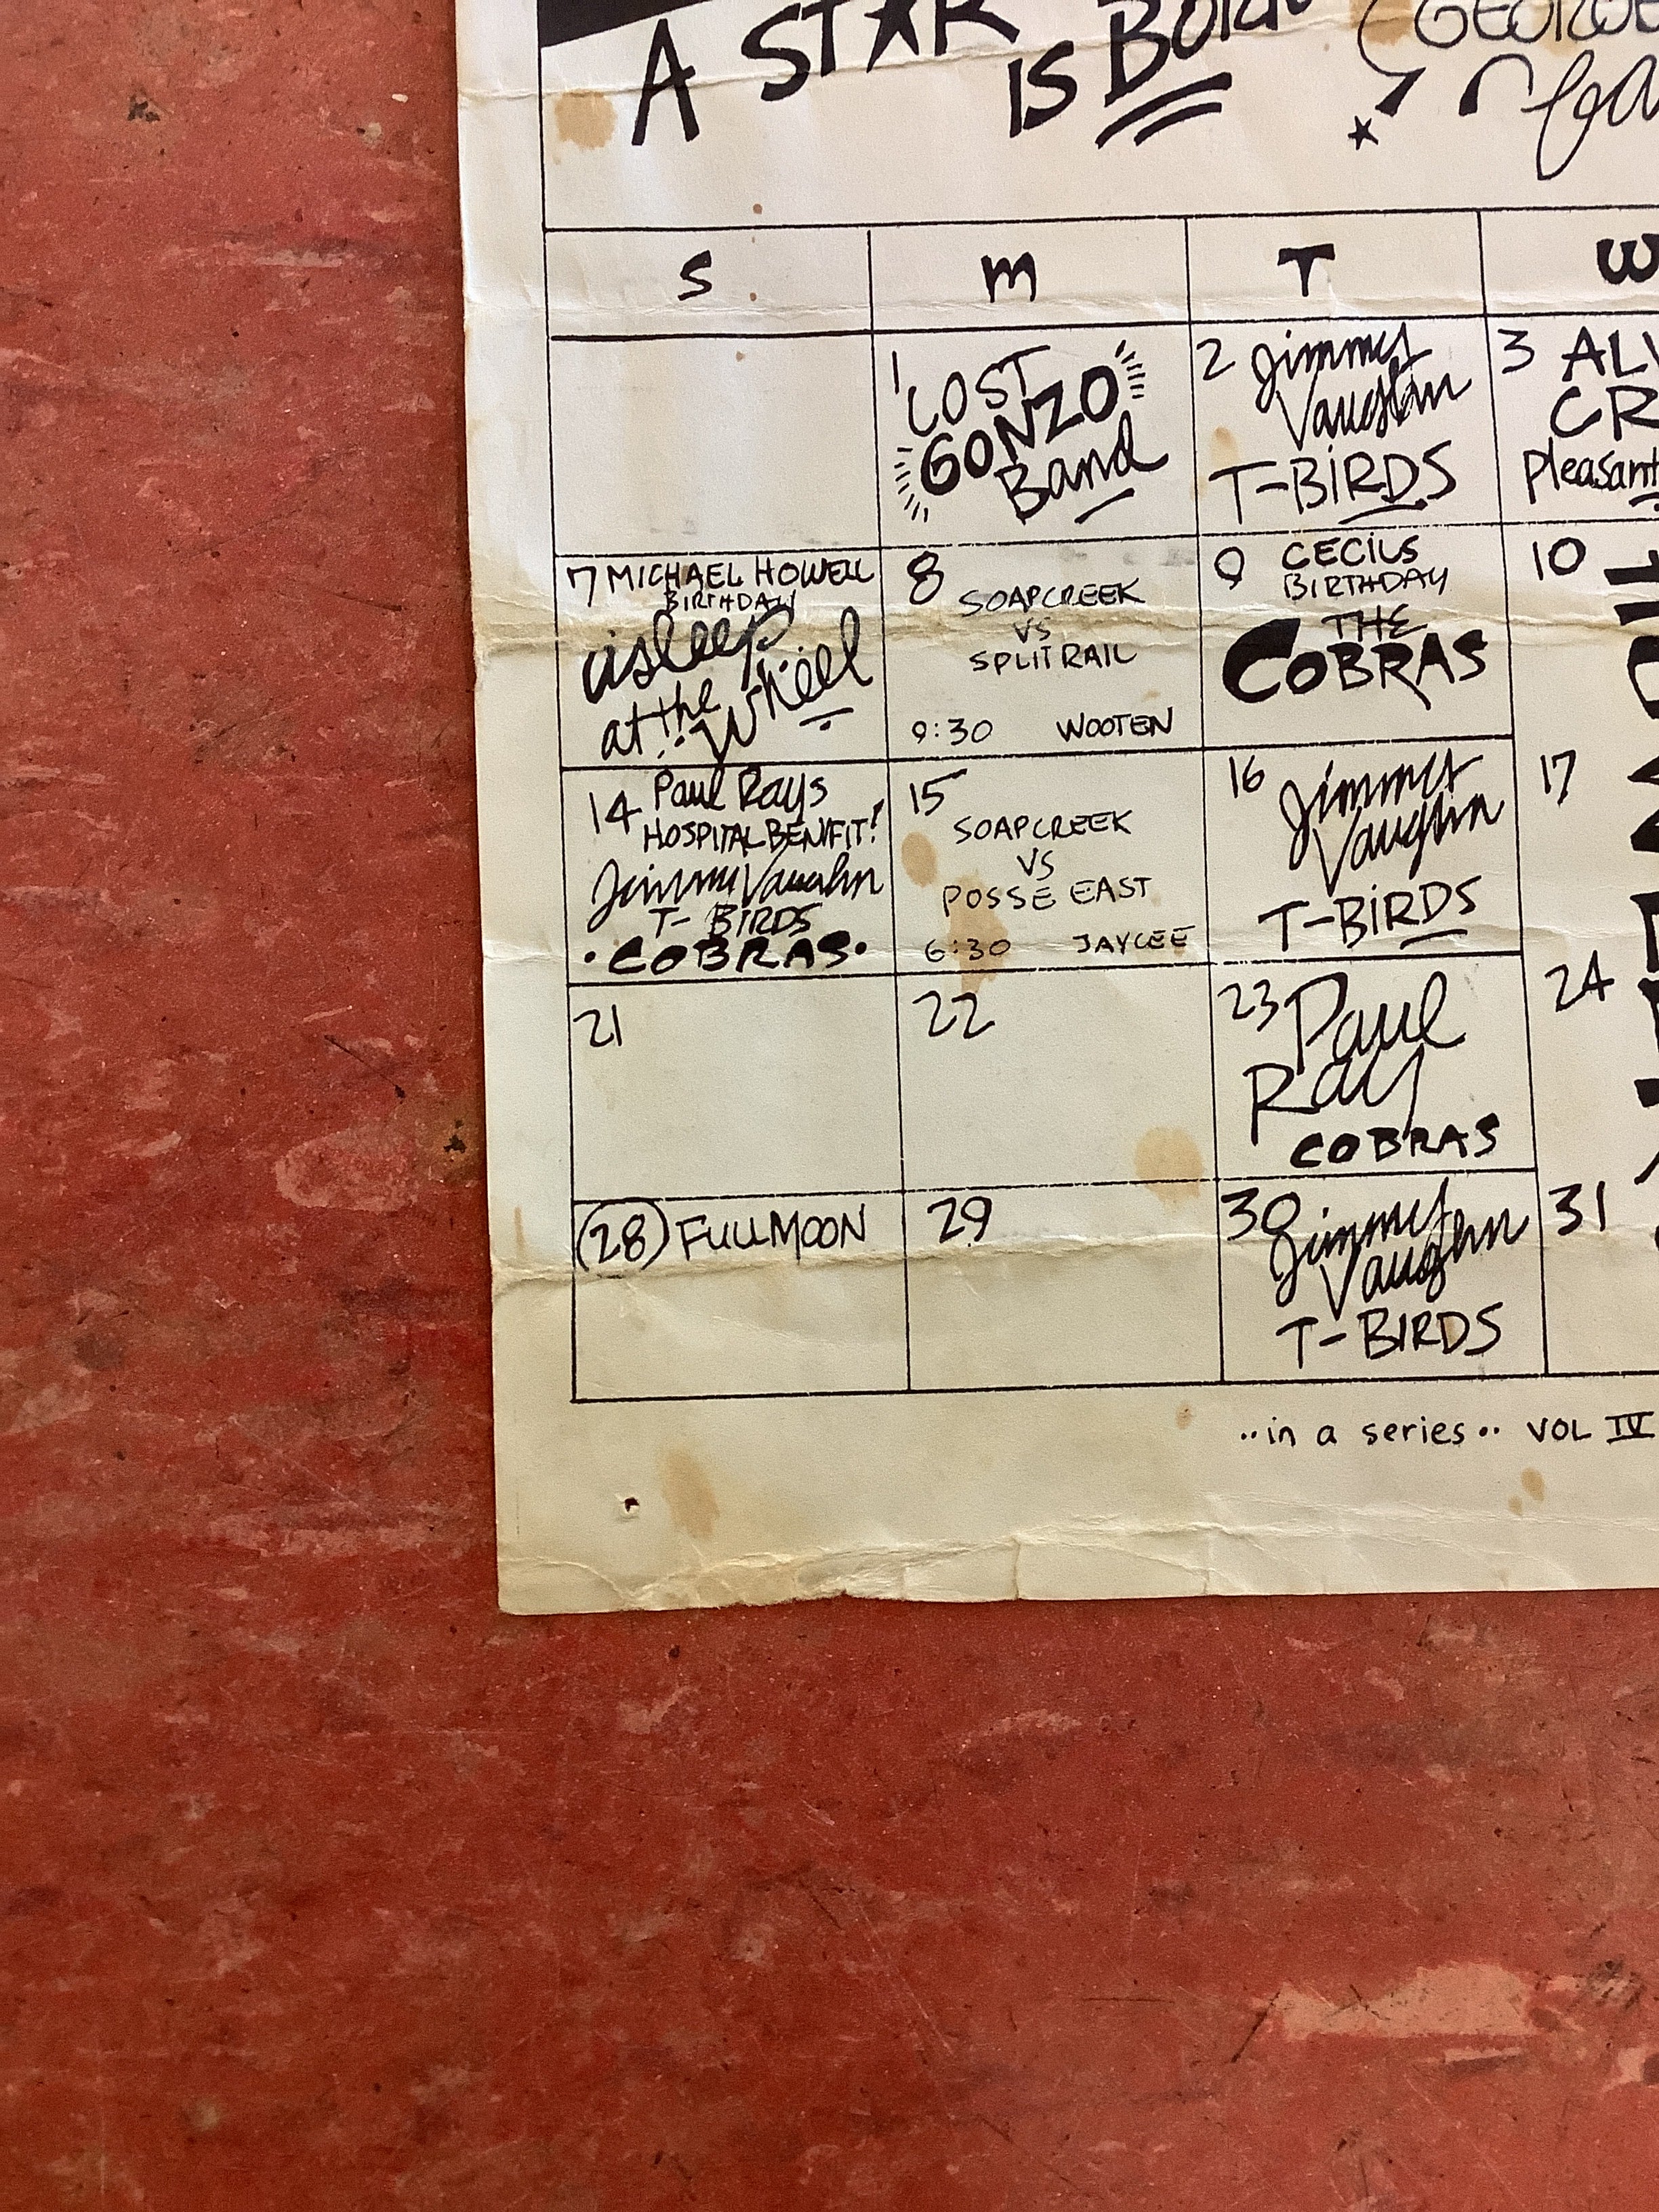 A STAR IS BORN
S M T W
1 LOST
GONZO
Band
2 Jimmy
Vaughn
T-BIRDS
3
7 MICHAEL HOWELL
BIRTHDAY
asleep
at the
Wheel
8
SOAPCREEK
VS
SPLIT RAIL
9:30 WOOTEN
9 CECILS
BIRTHDAY
THE
COBRAS
10
14 Paul Rays
HOSPITAL BENIFIT!
Jimmy Vaughn
T-BIRDS
•COBRAS•
15
SOAPCREEK
VS
POSSE EAST
6:30 JAYCEE
16 Jimmy
Vaughn
T-BIRDS
17
21
22
23 Paul
Ray
COBRAS
24
28 FULL MOON
29
30 Jimmy
Vaughn
T-BIRDS
31
..in a series.. VOL IV